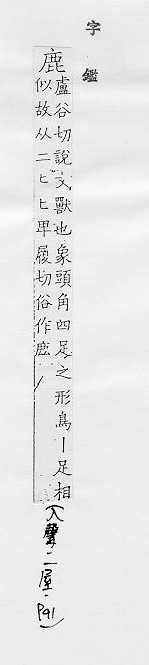 字鑑
鹿
盧谷切說文獸也象頭角四足之形鳥丨足相
似故从二匕匕卑履切俗作𢈘
(入聲·二屋·P91)